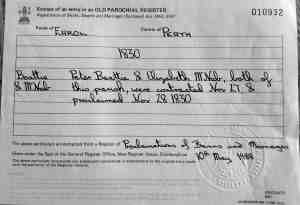 Extract of an entry in an OLD PAROCHIAL REGISTER
Registration of Births, Deaths and Marriages (Scotland) Act 1965
010932
Parish of ERROL County of PERTH
1830
Beattie Peter Beattie & Elizabeth McNab, both of
& McNab this parish, were contracted Nov 27 &
proclaimed Nov 28 1830
The above particulars are extracted from a Register of Proclamations of Banns and Marriages
Given under the Seal of the General Register Office, New Register House, Edinburgh on 10th May 1988